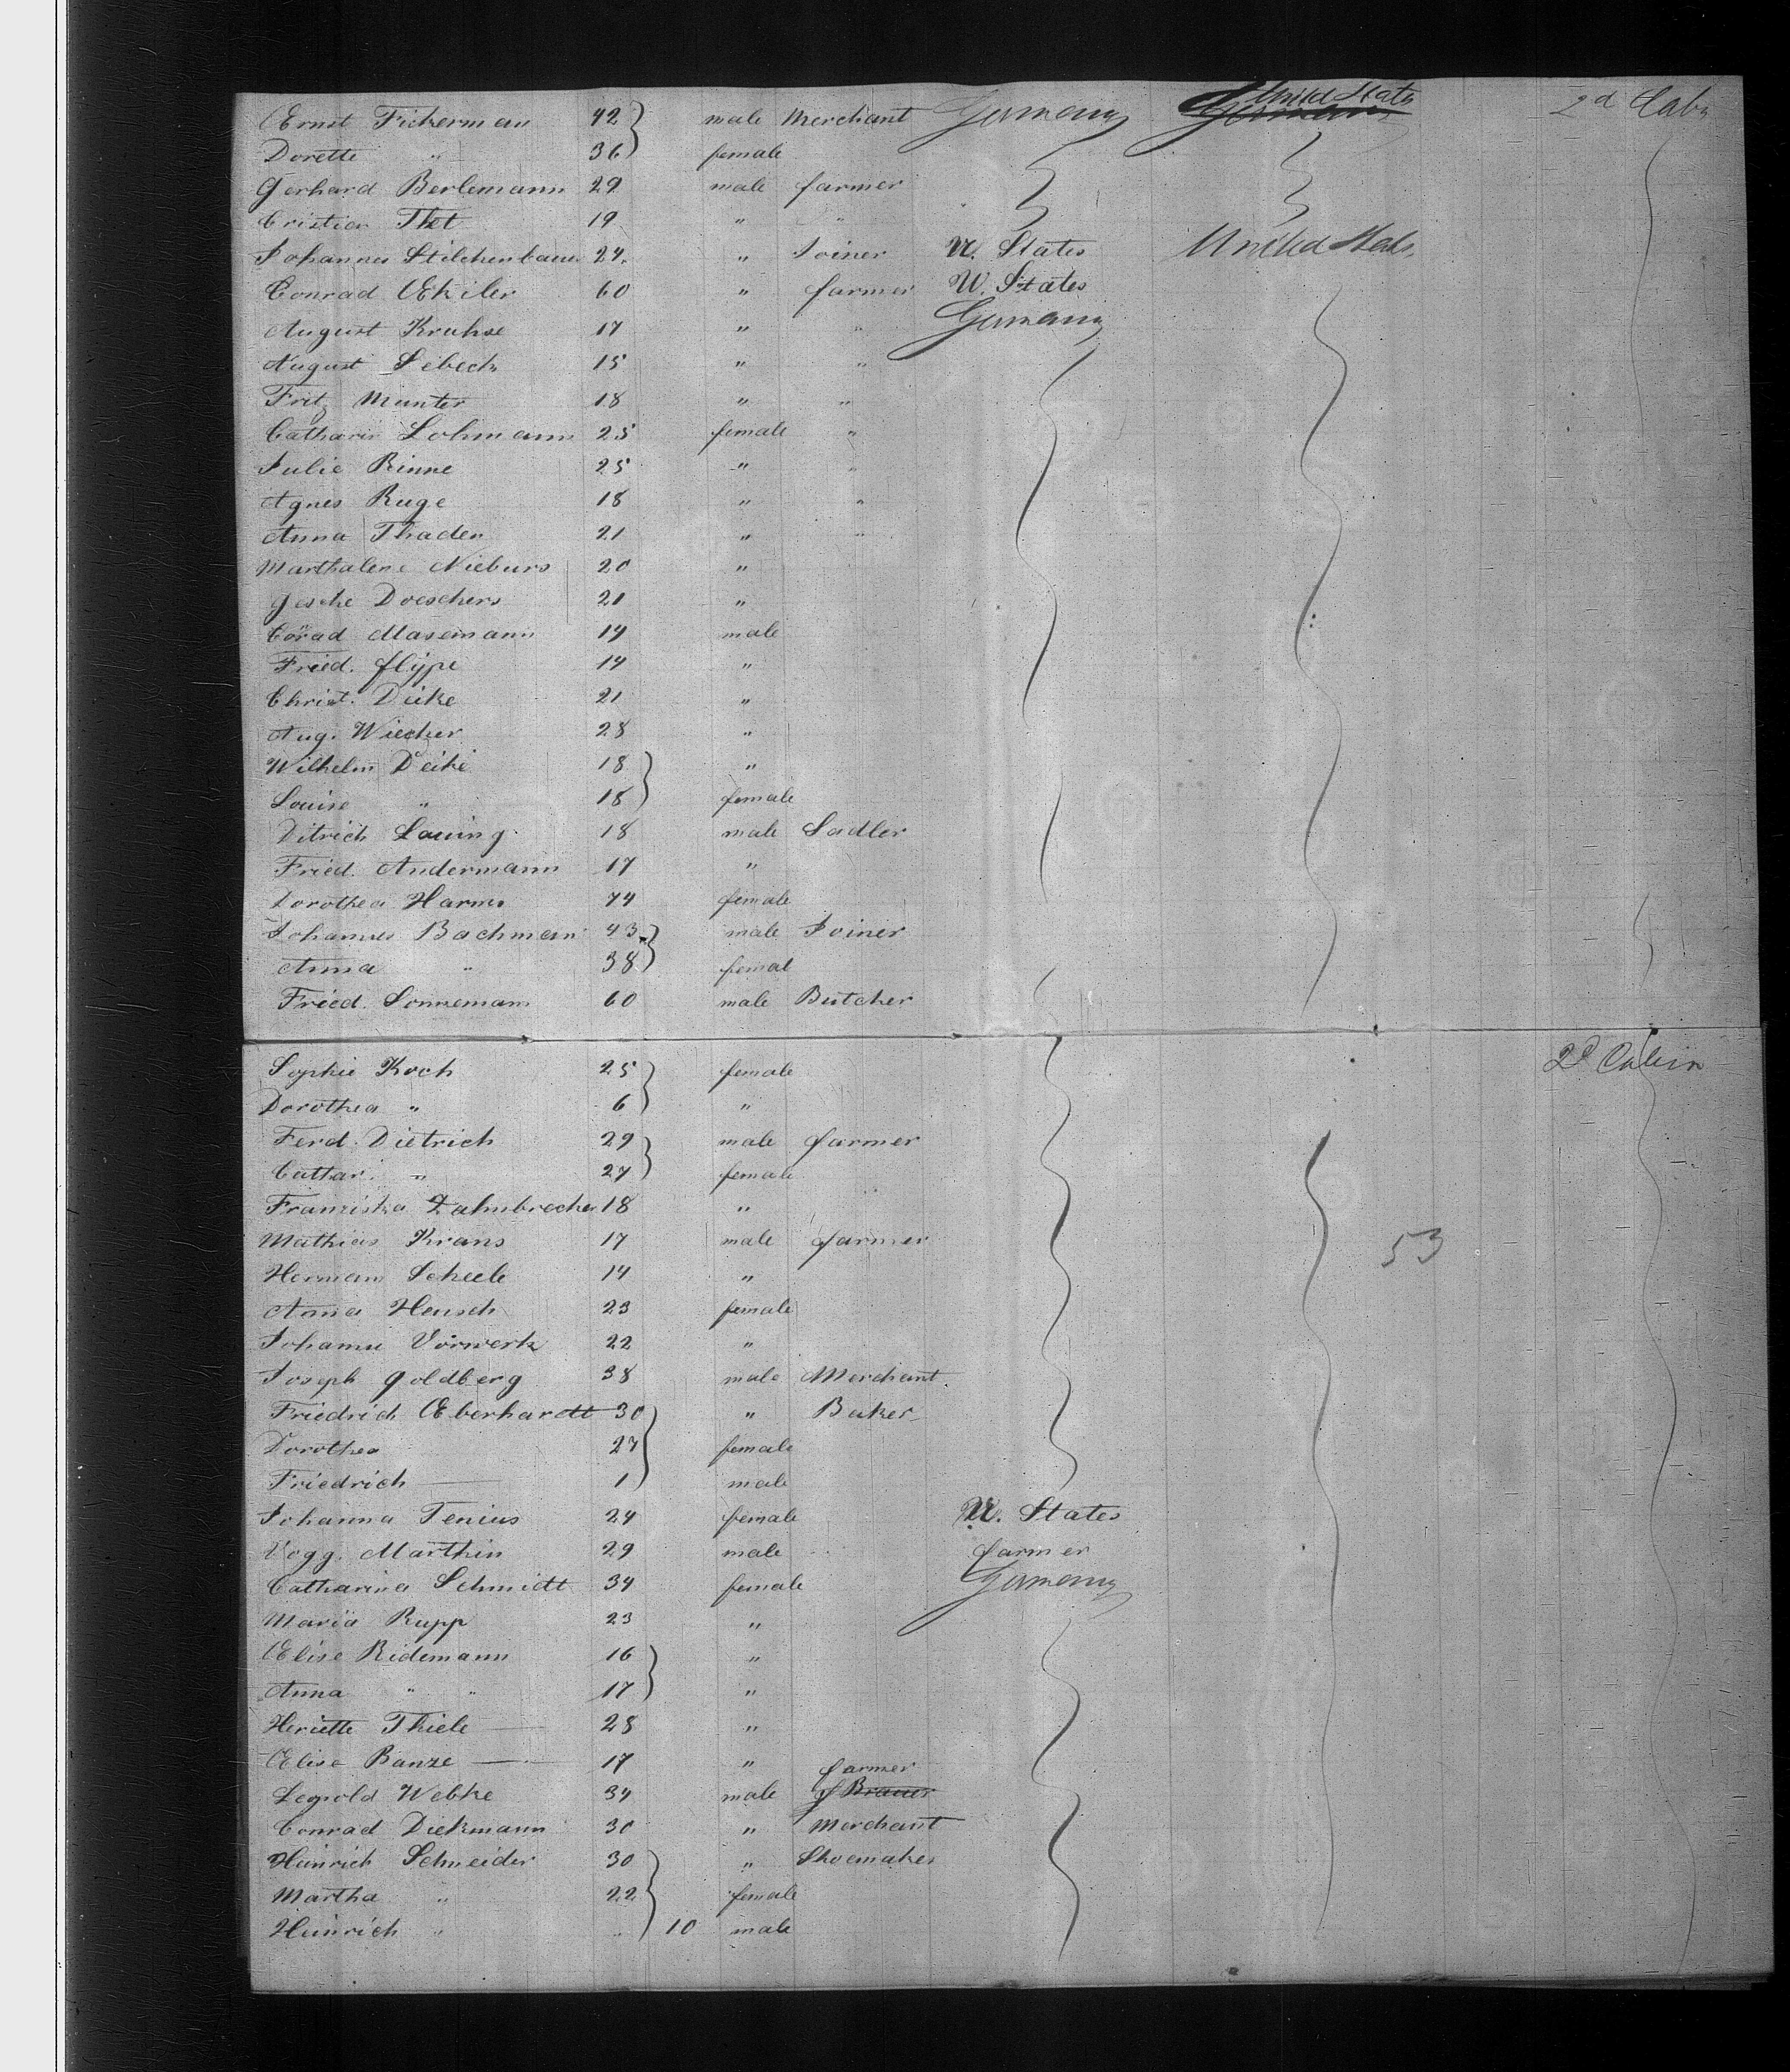 Ernst Fickerman 42 male Merchant Germany United States Germany 2d Cabn
Dorette " 36 female
Gerhard Berlemann 29 male farmer
Cristian Thet 19 " "
Johannes Stilchenbauer 24 " Joiner U. States United States
Conrad Ekiler 60 " farmer U. States
August Kruhse 17 " " Germany
August Sebeck 15 " "
Fritz Munter 18 " "
Catharin Lohmann 25 female "
Julie Rinne 25 " "
Agnes Ruge 18 " "
Anna Thaden 21 " "
Marthalene Nieburs 20 "
Gesche Doeschers 21 "
Corad Masemann 14 male
Fried. flype 14 "
Christ. Deike 21 "
Aug. Wiecher 28 "
Wilhelm Deike 18 "
Louise " 18 female
Ditrich Lauing 18 male Sadler
Fried. Andermann 17 "
Dorothea Harms 74 female
Johannes Bachmann 43 male Joiner
Anna " 38 femal
Fried. Sonnemann 60 male Butcher
Sophie Koch 25 female 2d Cabin
Dorothea " 6 "
Ferd. Dietrich 29 male farmer
Cathar. " 27 female
Franziska Zahnbrecher 18 "
Mathias Krans 17 male farmer 53
Hermann Scheele 14 "
Anna Hensch 23 female
Johanne Vorwerk 22 "
Joseph Goldberg 38 male Merchant
Friedrich Eberhardt 30 " Baker
Dorothea 27 female
Friedrich — 1 male
Johanna Tenius 24 female U. States
Vogg. Marthin 29 male farmer
Catharina Schmidt 34 female Germany
Maria Rupp 23 "
Elise Ridemann 16 "
Anna " " 17 "
Heriette Thiele — 28 "
Elise Banze — 17 "
farmer
Lepold Webke 34 male Brauer
Conrad Diekmann 30 " Merchant
Heinrich Schneider 30 " Shoemaker
Martha " 22 female
Heinrich " 10 male